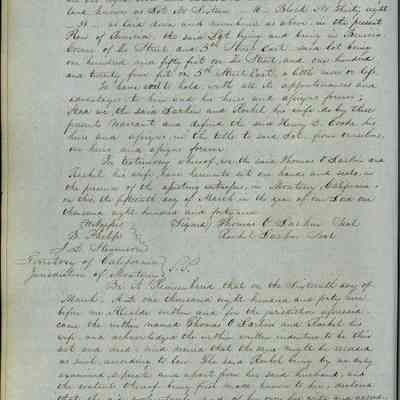 land, known as Lot No Sixteen — 16 — Block No Thirty eight
— as laid down and numbered as above, in the present
Plan of Benicia, the said Lot lying and being in Benicia
Corner of St Street, and 3rd Street East. said lot being
one hundred and fifty feet on St Street, and one hundred
and twenty four feet on 3rd Street East, a little more or less.
To have and to hold, with all the appurtenances and
advantages to him and his heirs and assigns forever;
And we the said Larkin and Rachel his wife do by these
presents Warrant and defend the said Henry D. Cooke his
heirs and assigns, in the title to said Lot, from ourselves,
our heirs and assigns forever.
In testimony whereof, we the said Thomas O Larkin and
Rachel his wife, have hereunto set our hands and seals, in
the presence of the attesting witnesses, in Monterey California,
on this the fifteenth day of March in the year of our Lord one
thousand eight hundred and forty
Witnesses Signed Thomas O Larkin Seal
Phelps Rachel Larkin Seal
J. D. Stevenson
Territory of California
Jurisdiction of Monterey S.S.
Be it Remembered that on the Sixteenth day of
March A.D. one thousand eight hundred and forty
before me Alcalde within and for the jurisdiction aforesaid
came the within named Thomas O Larkin and Rachel his
wife, and acknowledged the within written indenture to be their
act and deed, and desired that the same might be recorded
as such, according to law. The said Rachel being by me duly
examined, separate and apart from her said husband, and
the contents thereof being first made known to her, declared
that she did voluntarily and of her own free will and accord